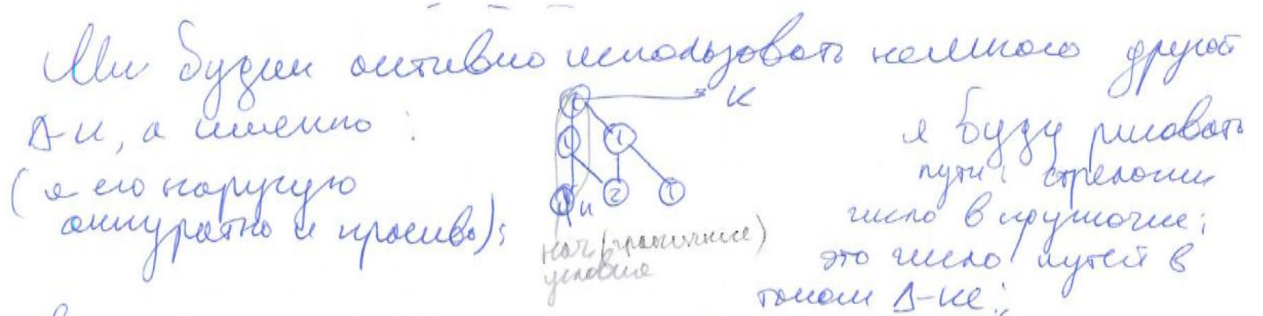 Мы будем активно использовать немного другой
Δ-к, а именно:
(я его нарисую
аккуратно и красиво);
K
1
1 1
1 2 1
n
нач (граничные)
условия
я буду рисовать
пути: стрелочки
число в кружочке;
это число путей в
таком Δ-ке;